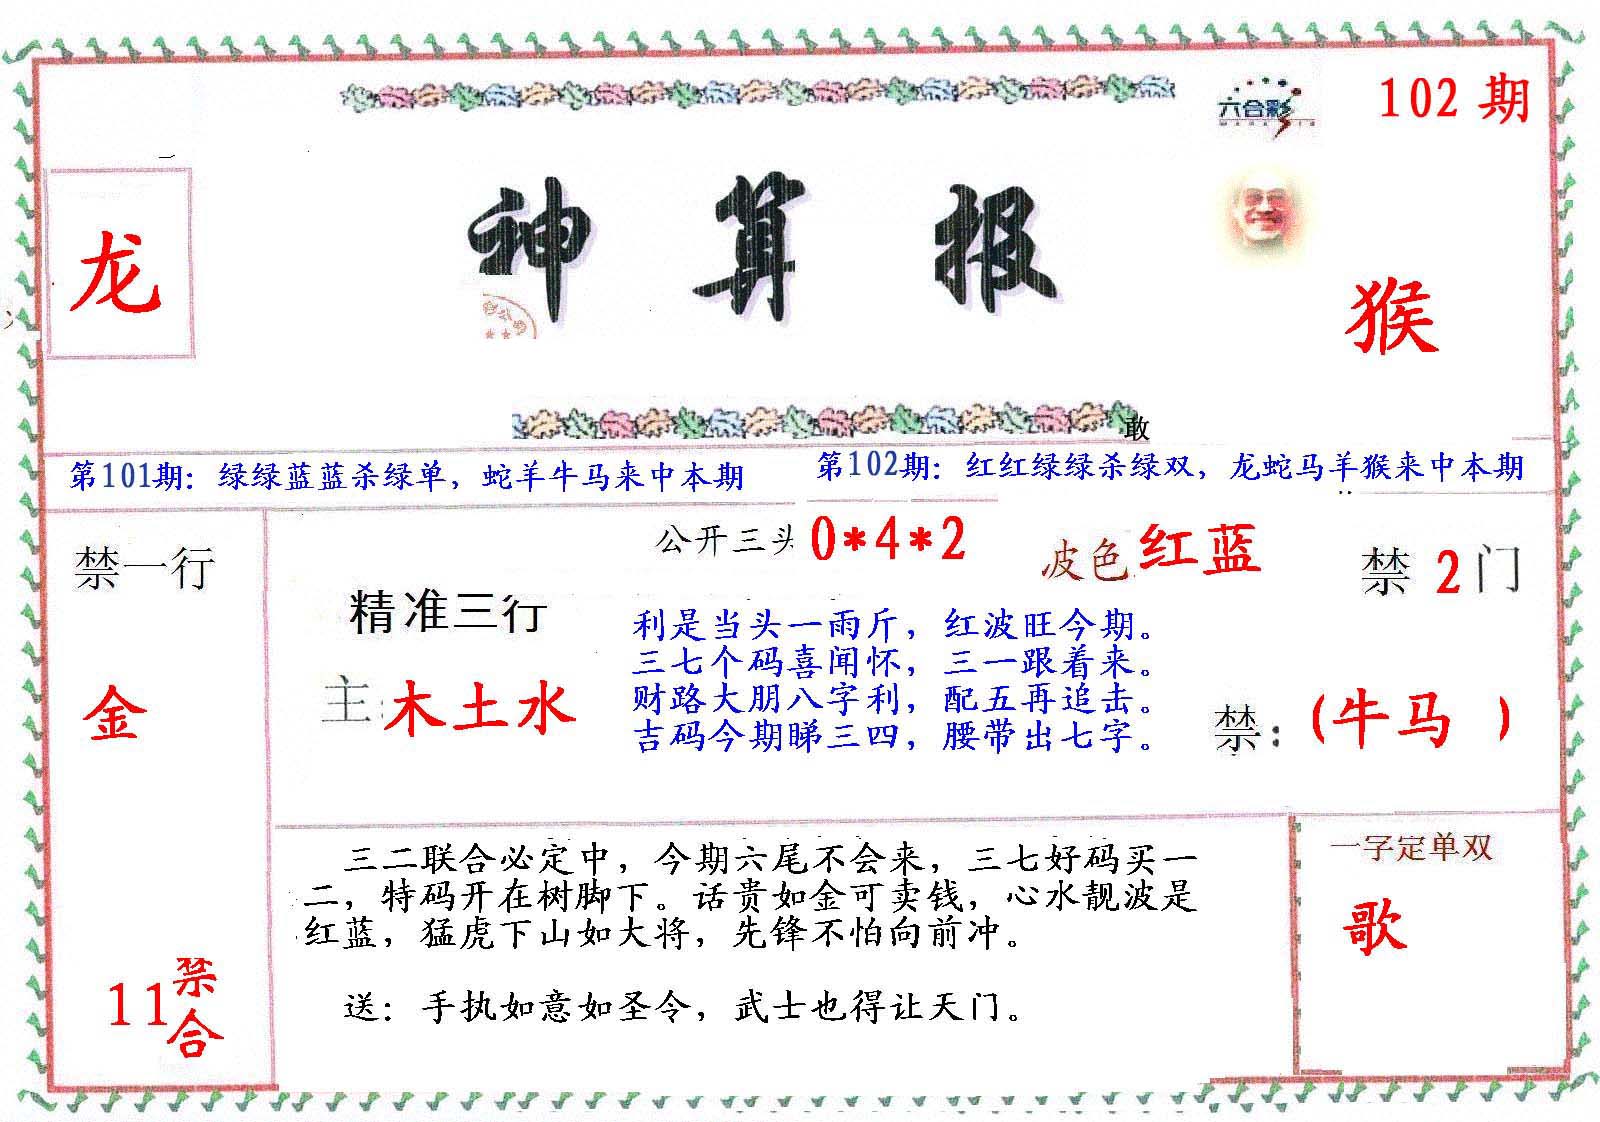 102 期
六合彩
神 算 报
龙
猴
敢
第101期：绿绿蓝蓝杀绿单，蛇羊牛马来中本期
第102期：红红绿绿杀绿双，龙蛇马羊猴来中本期
禁一行
金
11禁合
公开三头 0*4*2
波色 红蓝
禁 2 门
精准三行
主: 木土水
利是当头一雨斤，红波旺今期。
三七个码喜闻怀，三一跟着来。
财路大朋八字利，配五再追击。
吉码今期睇三四，腰带出七字。
禁: (牛马 )
三二联合必定中，今期六尾不会来，三七好码买一
二，特码开在树脚下。话贵如金可卖钱，心水靓波是
红蓝，猛虎下山如大将，先锋不怕向前冲。
送：手执如意如圣令，武士也得让天门。
一字定单双
歌